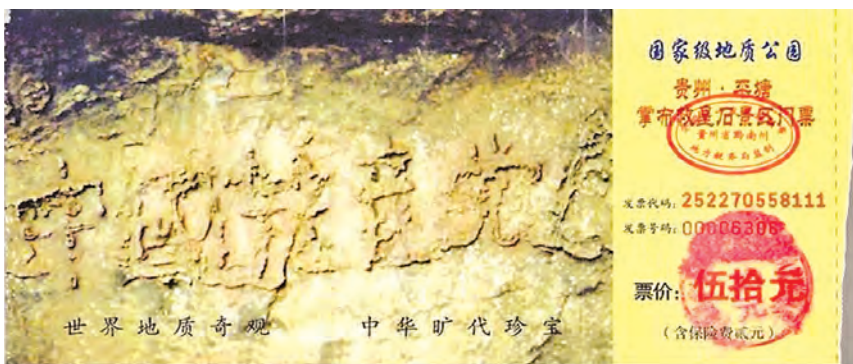 中国共产党
世界地质奇观
中华旷代珍宝
国家级地质公园
贵州·平塘
掌布救星石景区门票
贵州省黔南州
地方税务局监制
发票代码:252270558111
发票号码:00006306
票价:伍拾元
(含保险费贰元)